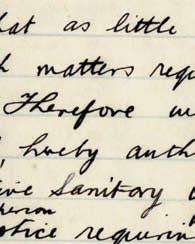 hat as little
matters requ
Therefore
hereby auth
ive Sanitary
person
otice requirin